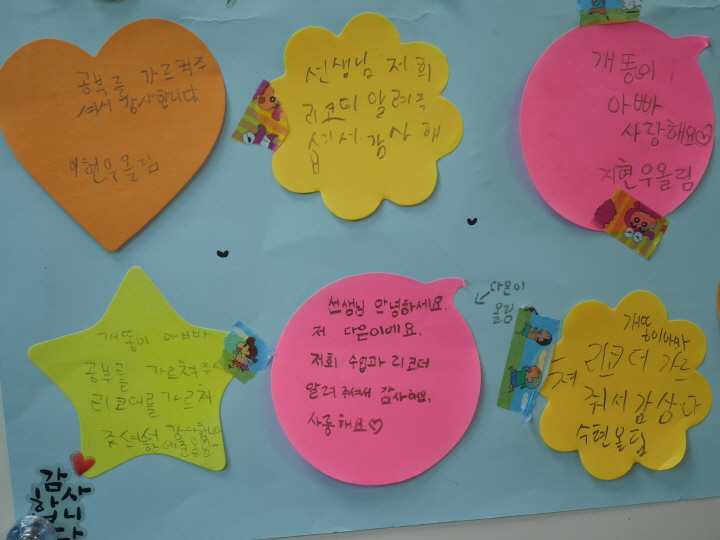 공부를 가르켜주
셔서 감사합니다
이현우올림
선생님 저희
리코더 알려주
셔서 감사해
요
개똥이
아빠
사랑해요♡
지현우올림
개똥이 아빠
공부를 가르쳐주시
리코더를 가르쳐
주셔서
선생님 안녕하세요.
저 다은이에요.
저희 수업과 리코더
알려 주셔서 감사해요.
사랑해요♡
다은이
올림
개똥이아빠
리코더 가르
쳐
줘서 감상다
수현올림
감사
합니다